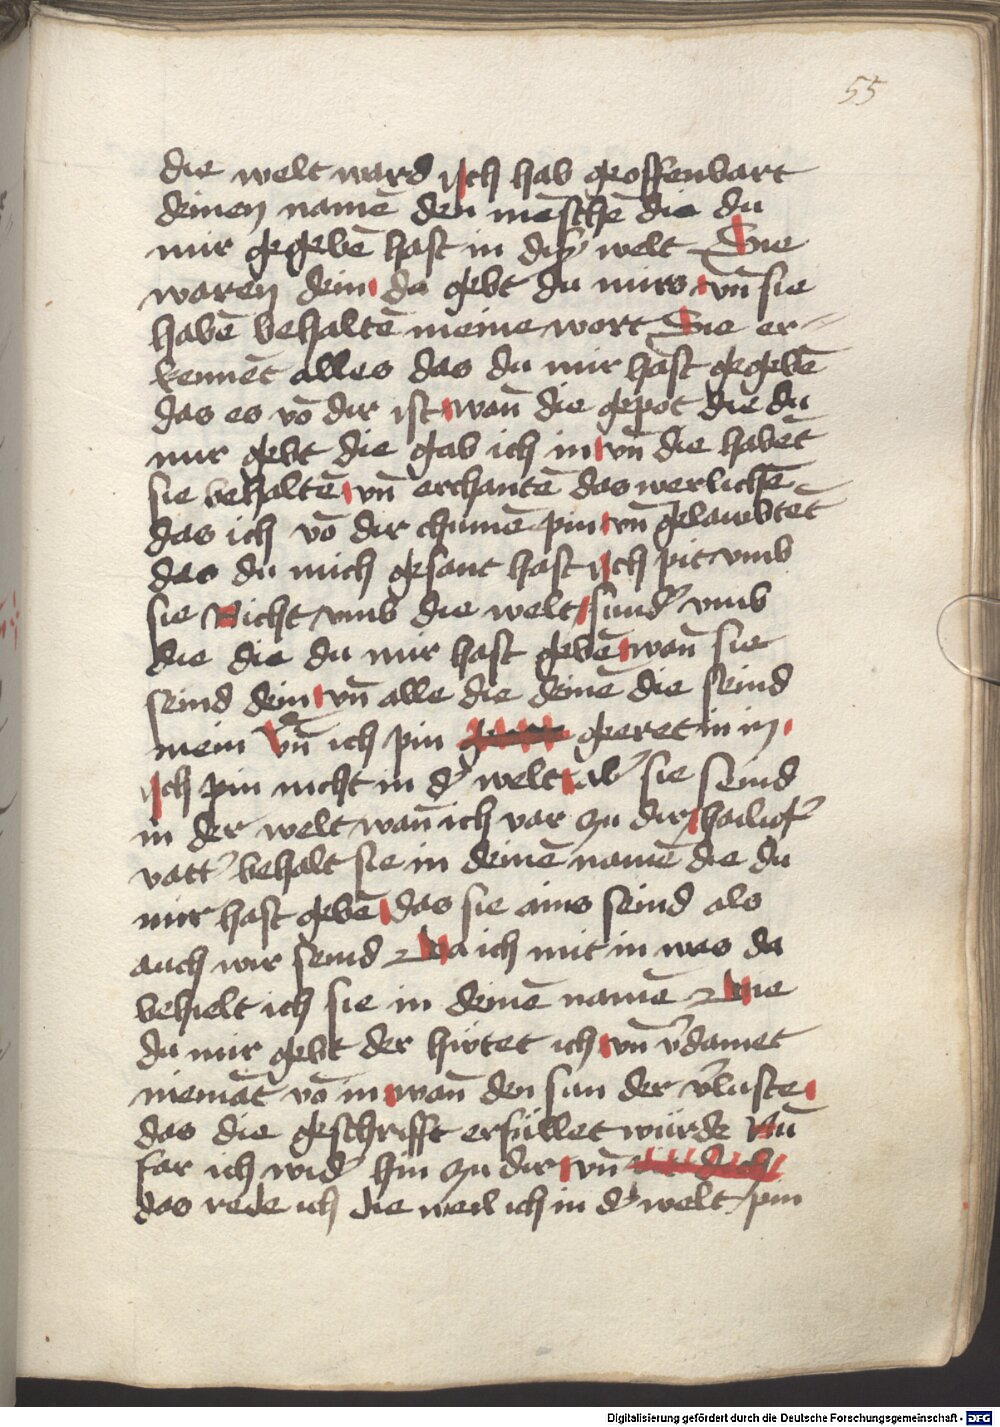 55
die welt ward Ich hab geoffenbart
deinen namē den mēschē die du
mir gegebē hast in diser welt Sie
waren dein da gebt du mirs vn̄ sie
habē behaltē meine wort Sie er-
kennēt alles das du mir hast gegebē
das es vō dir ist wan̄ die gepot die du
mir gebt die gab ich in vn̄ die habēt
sie behaltē vn̄ erchantē das werlichē
das ich vō dir chumē pin vn̄ gelawbtēt
das du mich gesant hast Ich pit vmb
sie Nicht vmb die welt sund' vmb
die die du mir hast gebē wan̄ sie
seind dein vn̄ alle die deinē die seind
mein Vn̄ ich pin geeret in in
Ich pin nicht in d' welt ab' sie seind
in der welt wan̄ ich var zu dir hailig'
vatt' behalt sie in deinē namē die du
mir hast gebē das sie ains seind als
auch wir seind Da ich mit in was da
behielt ich sie in deinē namē Die
du mir gebt der hűtet ich vn̄ v'damet
niemāt vō in wan̄ den sun der v'luste
das die geschrifft erfüllet würde Nū
far ich wid' hin zu dir vn̄
das rede ich die weil ich in d' welt pin
Digitalisierung gefördert durch die Deutsche Forschungsgemeinschaft - DFG